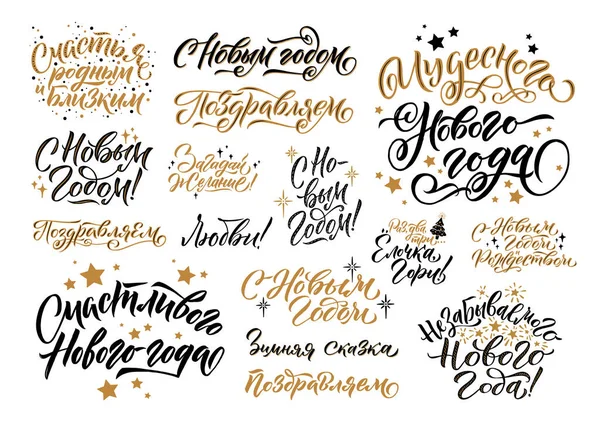 Счастья
родным
и близким
С Новым годом
Поздравляем
Чудесного
Нового
года
С Новым
Годом!
Загадай
Желание!
С Но-
вым
Годом!
Поздравляем
Любви!
Раз, два,
три
Ёлочка
Гори!
С Новым
Годом
Рождеством
Счастливого
Нового года
С Новым
Годом
Зимняя Сказка
Поздравляем
Незабываемого
Нового
Года!